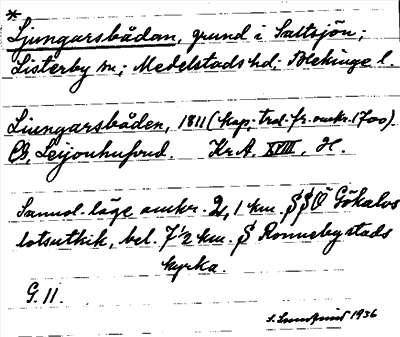 *
Ljungarsbådan, grund i Saltsjön;
Listerby sn; Medelstads hd; Blekinge l.
Liungarsbåden, 1811 (kop. trol. fr. omkr. 1700)
C. G. Leijonhufvud. Kr.A. XVIII, H.
Sannol. läge omkr. 2,1 km. SSÖ Gökalvs
lotsutkik, bel. 7½ km. S Ronneby stads
kyrka.
G. 11.
1936